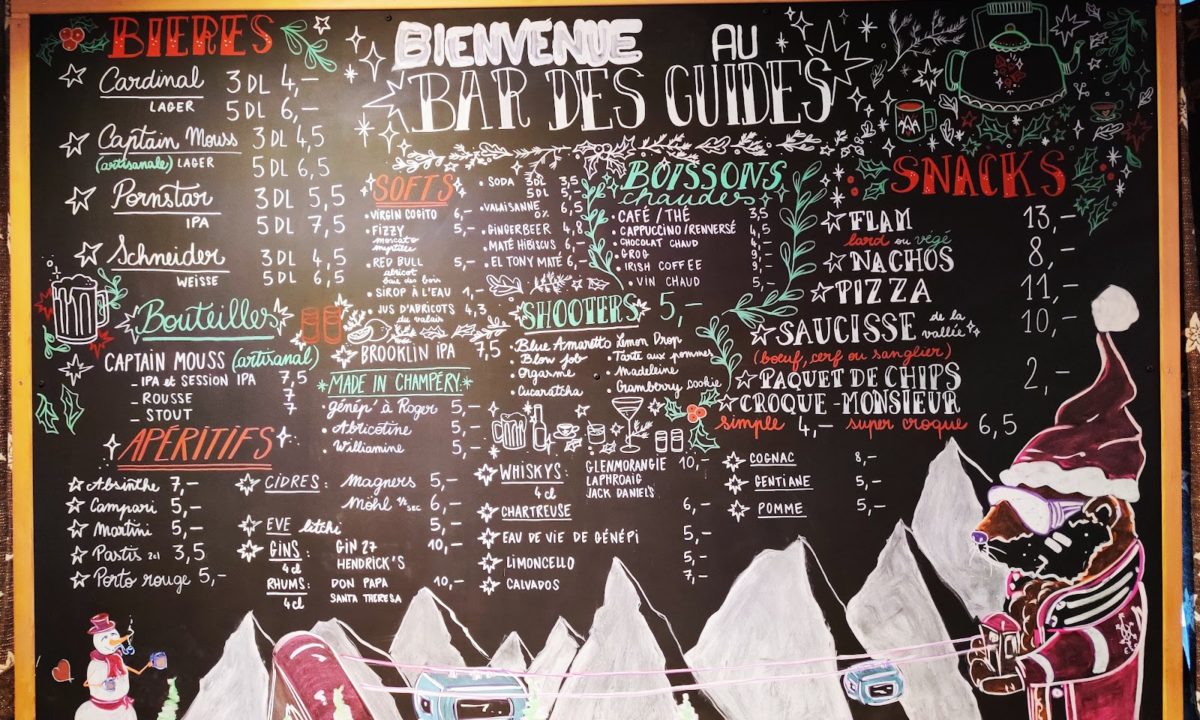 BIENVENUE AU
BAR DES GUIDES
BIERES
Cardinal 3 DL 4,-
LAGER 5 DL 6,-
Captain Mouss 3 DL 4,5
(artisanale) LAGER 5 DL 6,5
Pornstar 3 DL 5,5
IPA 5 DL 7,5
Schneider 3 DL 4,5
WEISSE 5 DL 6,5
Bouteilles
CAPTAIN MOUSS (artisanal)
- IPA et SESSION IPA 7,5
- ROUSSE 7
- STOUT 7
BROOKLIN IPA 7,5
APÉRITIFS
Absinthe 7,-
Campari 5,-
Martini 5,-
Pastis 2cl 3,5
Porto rouge 5,-
SOFTS
• VIRGIN COGITO 6,-
• FIZZY 5,-
moscato
myrtille
• RED BULL 5,-
abricot
baie des bois
• SIROP À L'EAU 1,-
• JUS D'ABRICOTS 4,3
du valais
• SODA 3DL 3,5
5DL 5,-
• VALAISANNE 6,5
0%
• GINGERBEER 4,8
• MATÉ HIBISCUS 6,-
• EL TONY MATÉ 6,-
MADE IN CHAMPÉRY
• génép' à Roger 5,-
• Abricotine 5,-
• Williamine 5,-
CIDRES: Magners 5,-
Möhl 1/2 sec 6,-
EVE litchi 5,-
GINS: GIN 27 10,-
4cl HENDRICK'S
RHUMS: DON PAPA 10,-
4cl SANTA THERESA
BOISSONS
chaudes
• CAFÉ / THÉ 3,5
• CAPPUCINO/RENVERSÉ 4,5
• CHOCOLAT CHAUD 4,5
• GROG 9,-
• IRISH COFFEE 9,-
• VIN CHAUD 5,-
SHOOTERS 5,-
• Blue Amaretto
• Blow job
• Orgasme
• Cucaratcha
• Lemon Drop
• Tarte aux pommes
• Madeleine
• Cramberry cookie
WHISKYS: GLENMORANGIE 10,-
4cl LAPHROAIG
JACK DANIEL'S
CHARTREUSE 6,-
EAU DE VIE DE GÉNÉPI 5,-
LIMONCELLO 5,-
CALVADOS 7,-
COGNAC 8,-
GENTIANE 5,-
POMME 5,-
SNACKS
FLAM 13,-
lard ou végé
NACHOS 8,-
PIZZA 11,-
SAUCISSE de la vallée 10,-
(bœuf, cerf ou sanglier)
PAQUET DE CHIPS 2,-
CROQUE-MONSIEUR
simple 4,- super croque 6,5